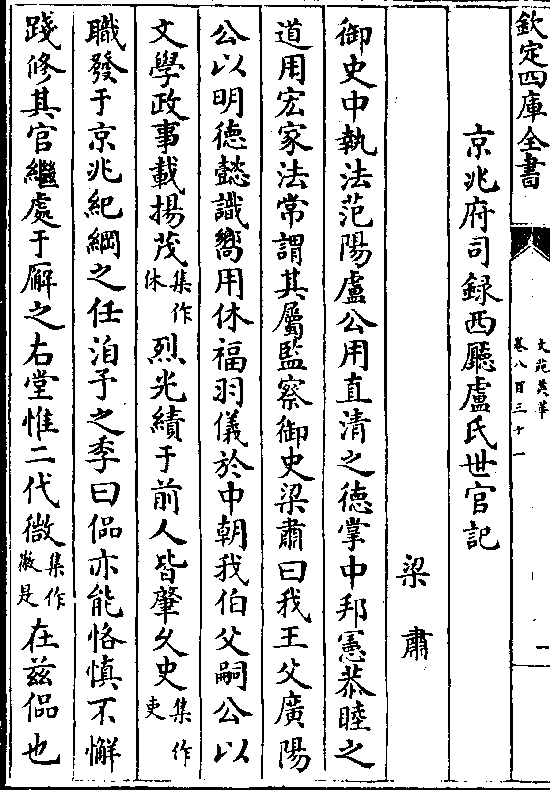 欽定四庫全書
文苑英華
卷八百三十一
一
京兆府司録西㕔盧氏世官記
梁肅
御史中執法范陽盧公用直清之德掌中邦憲恭睦之
道用宏家法常謂其屬監察御史梁肅曰我王父廣陽
公以明德懿識嚮用休福羽儀於中朝我伯父嗣公以
文學政事載揚茂集作休烈光績于前人皆肇攵史集作吏
職發于京兆紀綱之任洎予之季曰侣亦能恪慎不懈
踐修其官繼處于廨之右堂惟二代微集作徽是在兹侣也